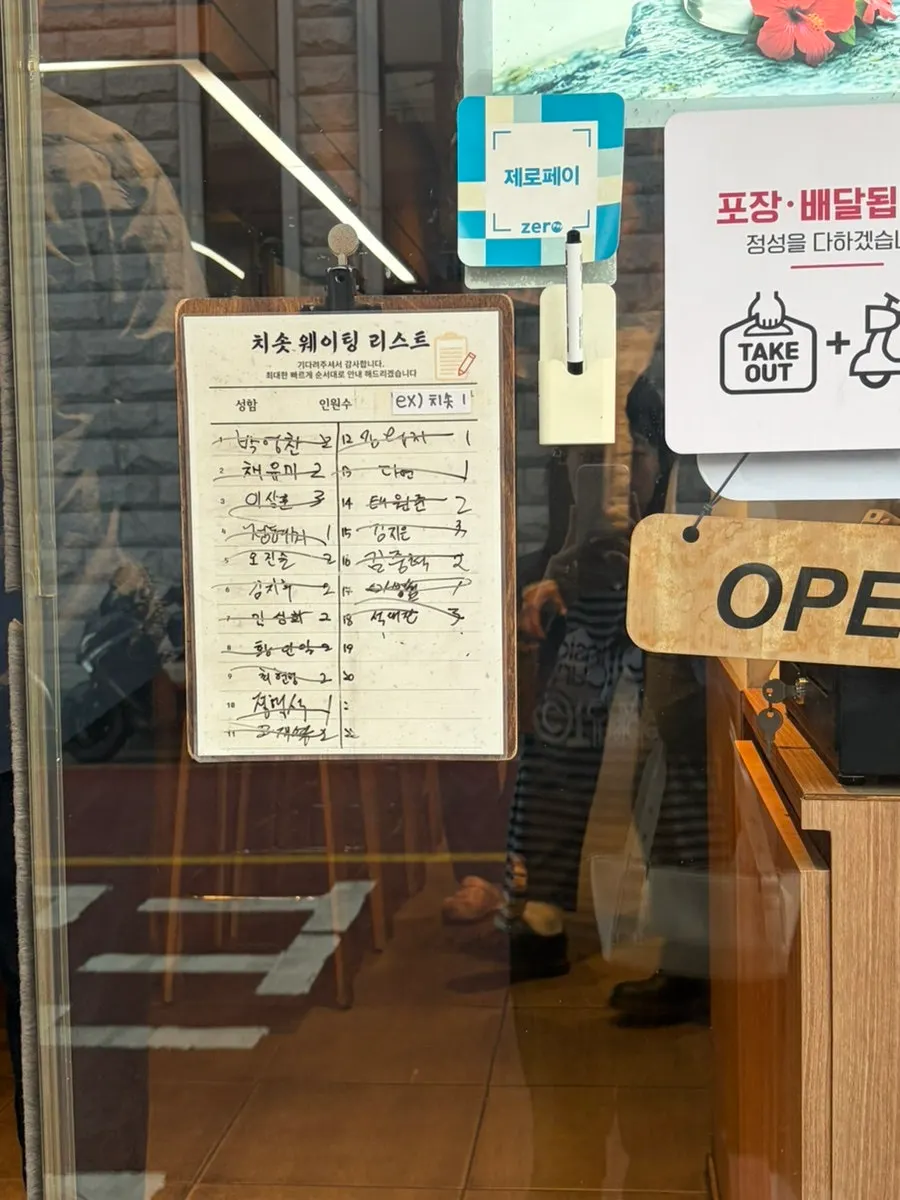 제로페이
zero
포장·배달됩
정성을 다하겠습니
TAKE
OUT
+
치솟 웨이팅 리스트
기다려주셔서 감사합니다.
최대한 빠르게 순서대로 안내 해드리겠습니다
성함 인원수 ex) 치솟 1
1 박영찬 2
2 채유미 2
3 이상훈 3
4 1
5 오진솔 2
6 김지희 2
7 김성화 2
8 2
9 최현영 2
10 1
11 2
12 1
13 다연 1
14 태원준 2
15 김지은 3
16 김중혁 2
17
18 석대찬 3
19
20
OPE